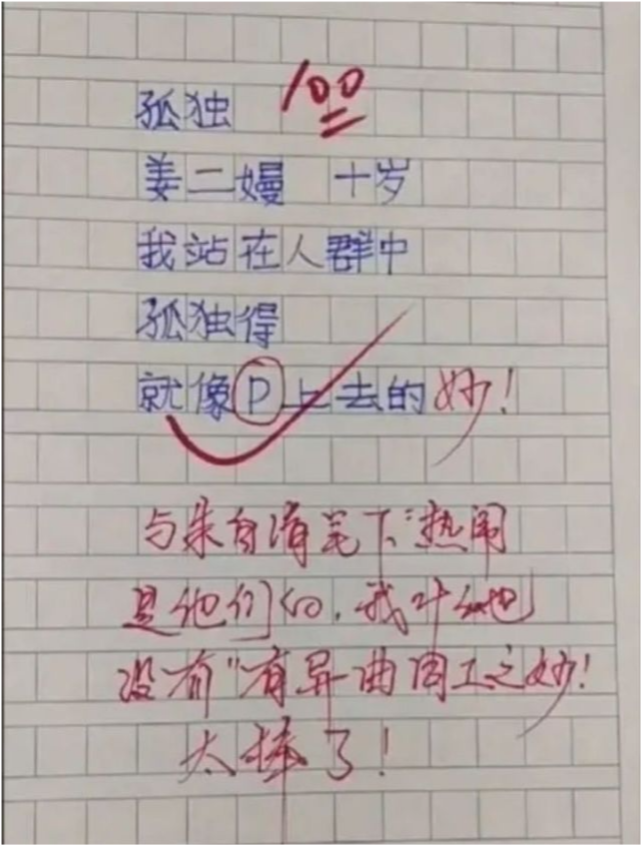 孤独 100
姜二嫚 十岁
我站在人群中
孤独得
就像P上去的 妙!
与朱自清笔下“热闹
是他们的,我什么也
没有”有异曲同工之妙!
太棒了!